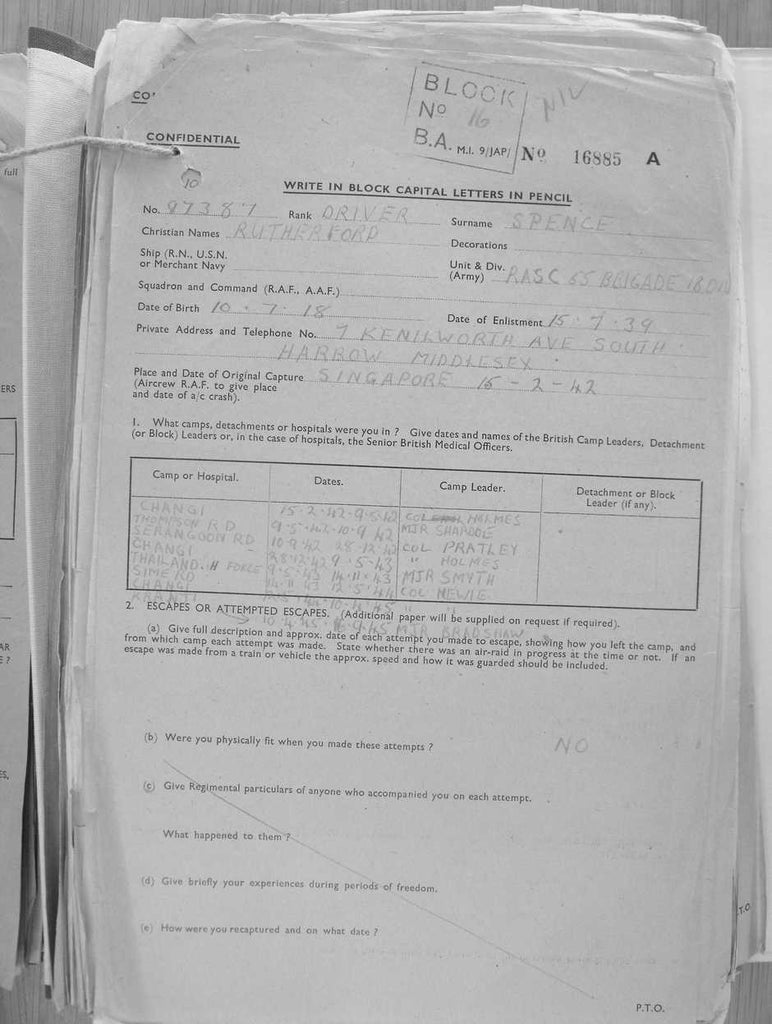 CO'
BLOCK
No 16
B.A. M.I. 9/JAP/ No 16885 A
CONFIDENTIAL
full
10
WRITE IN BLOCK CAPITAL LETTERS IN PENCIL
No. 97387 Rank DRIVER Surname SPENCE
Christian Names RUTHERFORD Decorations
Ship (R.N., U.S.N. or Merchant Navy
Unit & Div. (Army) RASC 65 BRIGADE 18 DIV
Squadron and Command (R.A.F., A.A.F.)
Date of Birth 10 . 7 . 18 Date of Enlistment 15 . 7 . 39
Private Address and Telephone No. 7 KENILWORTH AVE SOUTH
HARROW MIDDLESEX
Place and Date of Original Capture SINGAPORE 15 - 2 - 42
(Aircrew R.A.F. to give place
and date of a/c crash).
1. What camps, detachments or hospitals were you in ? Give dates and names of the British Camp Leaders, Detachment
(or Block) Leaders or, in the case of hospitals, the Senior British Medical Officers.
Camp or Hospital. Dates. Camp Leader. Detachment or Block
Leader (if any).
CHANGI 15.2.42-9.5.42 COL HOLMES
THOMPSON RD 9.5.42-10.9.42 MJR
SERANGOON RD 10.9.42 28.12.42 COL PRATLEY
CHANGI 28.12.42 9.5.43 " HOLMES
THAILAND. H FORCE 9.5.43 14.11.43 MJR SMYTH
SIME RD 14.11.43 12.5.44 COL NEWIE
CHANGI
KRANJI 10.4.45 MJR BRADSHAW
2. ESCAPES OR ATTEMPTED ESCAPES. (Additional paper will be supplied on request if required).
(a) Give full description and approx. date of each attempt you made to escape, showing how you left the camp, and
from which camp each attempt was made. State whether there was an air-raid in progress at the time or not. If an
escape was made from a train or vehicle the approx. speed and how it was guarded should be included.
(b) Were you physically fit when you made these attempts ? NO
(c) Give Regimental particulars of anyone who accompanied you on each attempt.
What happened to them ?
(d) Give briefly your experiences during periods of freedom.
(e) How were you recaptured and on what date ?
P.T.O.